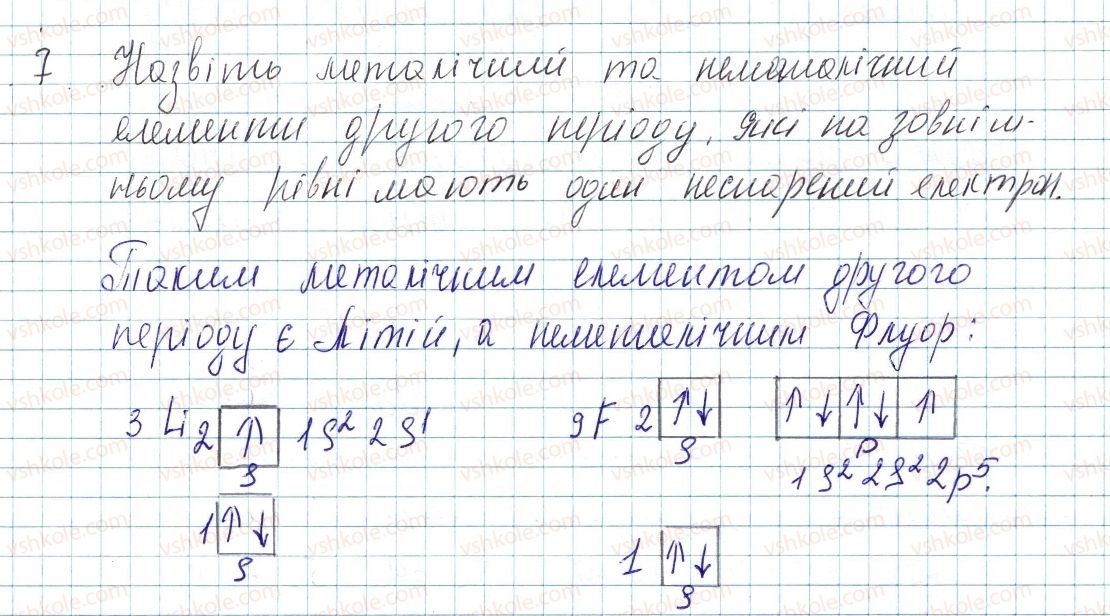 7 Назвіть металічний та неметалічний
елементи другого періоду, які на зовніш-
ньому рівні мають один неспарений електрон.
Таким металічним елементом другого
періоду є Літій, а неметалічним Флуор:
3 Li 2 ↑ 1s² 2s¹ 9F 2 ↑↓ ↑↓ ↑↓ ↑
s s p
1s² 2s² 2p⁵.
1 ↑↓ 1 ↑↓
s s
vshkole.com